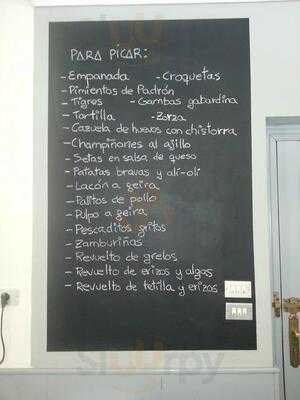 PARA PICAR:
- Empanada - Croquetas
- Pimientos de Padrón
- Tigres - Gambas gabardina
- Tortilla - Zorza
- Cazuela de huevos con chistorra
- Champiñones al ajillo
- Setas en salsa de queso
- Patatas bravas y ali-oli
- Lacón a feira
- Palitos de pollo
- Pulpo a feira
- Pescaditos fritos
- Zamburiñas
- Revuelto de grelos
- Revuelto de erizos y algas
- Revuelto de tetilla y erizos